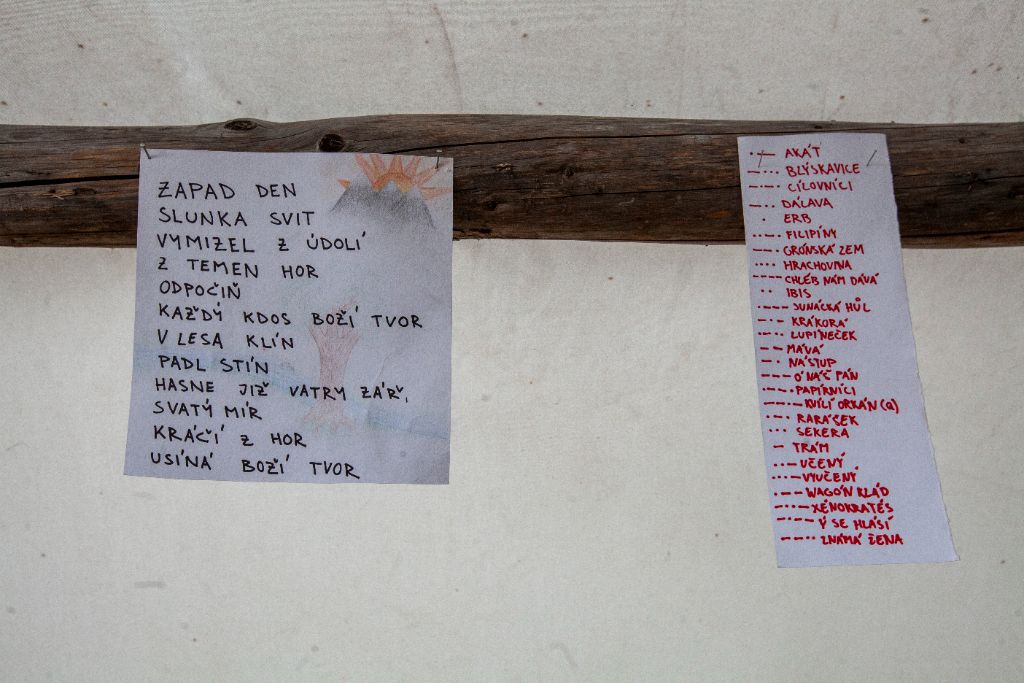 ZAPAD DEN
SLUNKA SVIT
VYMIZEL Z ÚDOLÍ
Z TEMEN HOR
ODPOČIŇ
KAŽDÝ KDOS BOŽÍ TVOR
V LESA KLÍN
PADL STÍN
HASNE JIŽ VATRY ZÁŘ,
SVATÝ MÍR
KRÁČÍ Z HOR
USÍNÁ BOŽÍ TVOR
·— AKÁT
—··· BLÝSKAVICE
—·—· CÍLOVNÍCI
—·· DÁLAVA
· ERB
··—· FILIPÍNY
——· GRÓNSKÁ ZEM
···· HRACHOVINA
———— CHLÉB NÁM DÁVÁ
·· IBIS
·——— JUNÁCKÁ HŮL
—·— KRÁKORÁ
·—·· LUPÍNEČEK
—— MÁVÁ
—· NÁSTUP
——— Ó NÁŠ PÁN
·——· PAPÍRNÍCI
——·— KVÍLÍ ORKÁN (Q)
·—· RARÁŠEK
··· SEKERA
— TRÁM
··— UČENÝ
···— VYUČENÝ
·—— WAGÓN KLÁD
—··— XÉNOKRATÉS
—·—— Ý SE HLÁSÍ
——·· ZNÁMÁ ŽENA